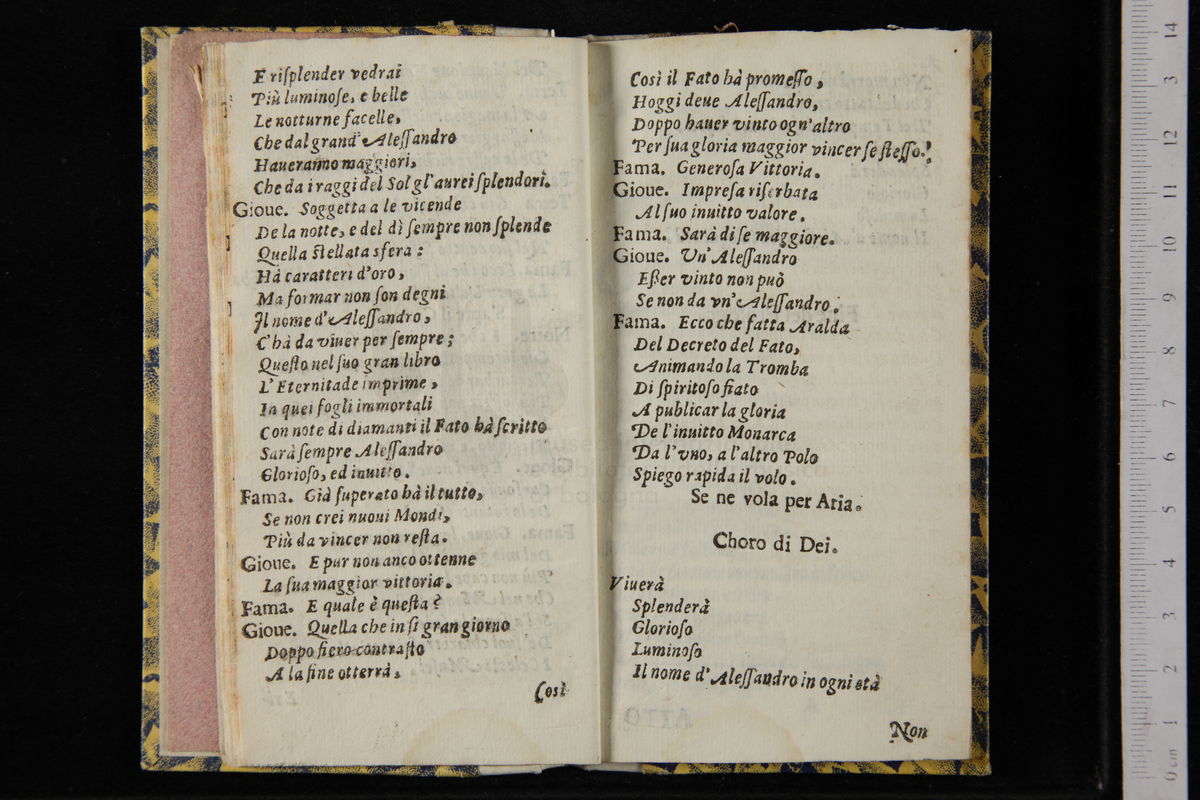 E risplender vedrai
Più luminose, e belle
Le notturne facelle,
Che dal grand' Alessandro
Haueranno maggiori,
Che da i raggi del Sol gl'aurei splendori.
Gioue. Soggetta a le vicende
De la notte, e del dì sempre non splende
Quella stellata sfera:
Hà caratteri d'oro,
Ma formar non son degni
Il nome d'Alessandro,
C'hà da viuer per sempre;
Questo nel suo gran libro
L'Eternitade imprime,
In quei fogli immortali
Con note di diamanti il Fato hà scritto
Sarà sempre Alessandro
Glorioso, ed inuitto.
Fama. Già superato hà il tutto,
Se non crei nuoui Mondi,
Più da vincer non resta.
Gioue. E pur non anco ottenne
La sua maggior vittoria.
Fama. E quale è questa?
Gioue. Quella che in sì gran giorno
Doppo fiero contrasto
A la fine otterrà,
Così
Così il Fato hà promesso,
Hoggi deue Alessandro,
Doppo hauer vinto ogn'altro
Per sua gloria maggior vincer se stesso.
Fama. Generosa Vittoria.
Gioue. Impresa riserbata
Al suo inuitto valore.
Fama. Sarà di se maggiore.
Gioue. Vn' Alessandro
Eßer vinto non può
Se non da vn' Alessandro.
Fama. Ecco che fatta Aralda
Del Decreto del Fato,
Animando la Tromba
Di spiritoso fiato
A publicar la gloria
De l'inuitto Monarca
Da l'vno, a l'altro Polo
Spiego rapida il volo.
Se ne vola per Aria.
Choro di Dei.
Viuerà
Splenderà
Glorioso
Luminoso
Il nome d'Alessandro in ogni età
Non
14
3
12
11
10
9
8
7
6
5
4
3
2
1
0 cm